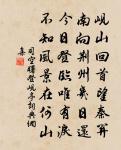 岘山回首望秦关
南向荆州几日还
今日登临唯有泪
不知风景在何山
司空曙登岘亭词典网
集